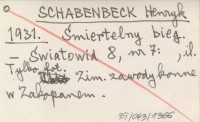 SCHABENBECK Henryk
1931. Śmiertelny bieg.
— Światowid 8, nr 7: , il.
Tylko fot. Zim. zawody konne
w Zakopanem.